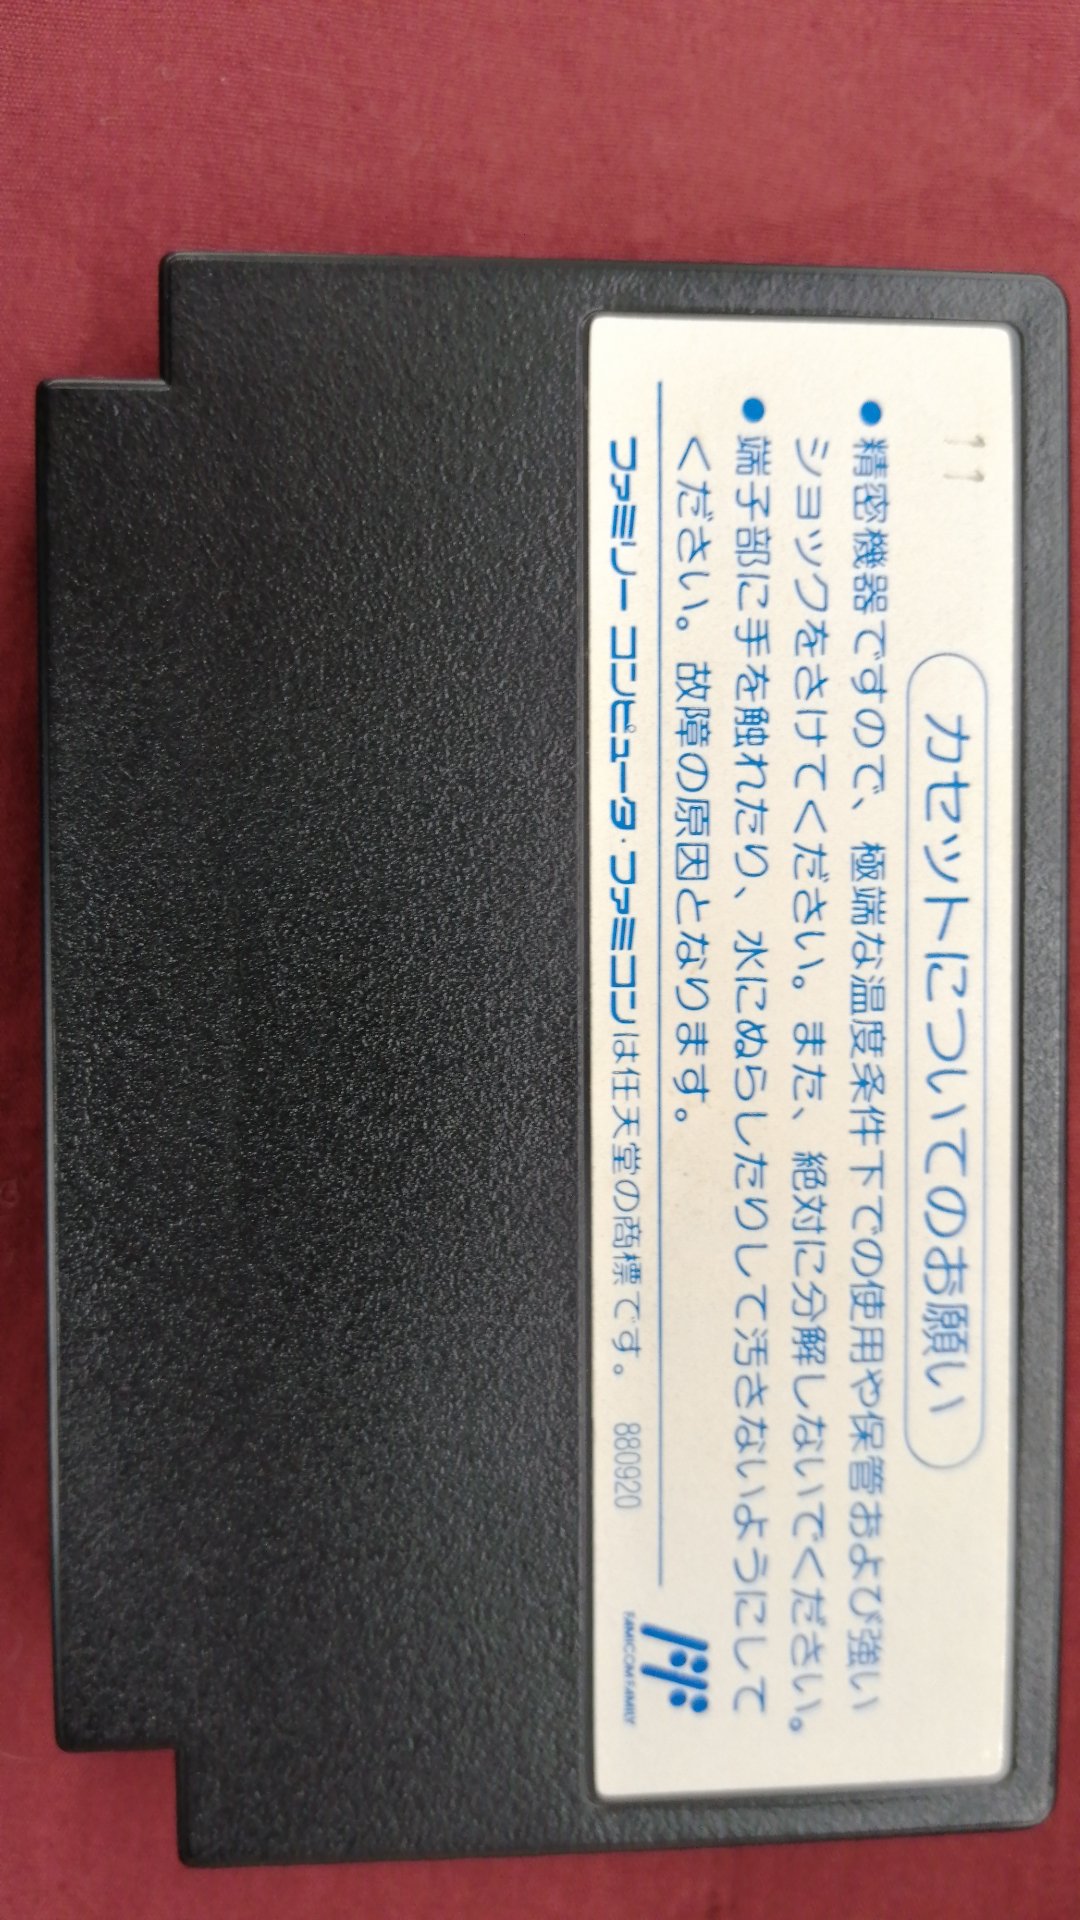 11
カセットについてのお願い
●精密機器ですので、極端な温度条件下での使用や保管および強い
ショックをさけてください。また、絶対に分解しないでください。
●端子部に手を触れたり、水にぬらしたりして汚さないようにして
ください。故障の原因となります。
ファミリー コンピュータ・ファミコンは任天堂の商標です。 880920
FAMICOM FAMILY